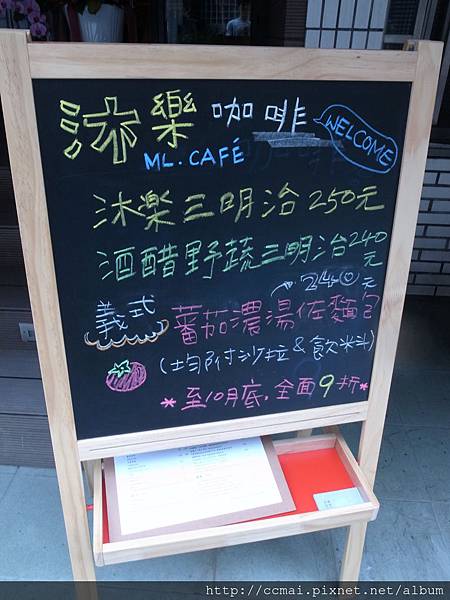 沐樂咖啡 WELCOME
ML. CAFÉ
沐樂三明治 250元
酒醋野蔬三明治 240元
240元
義式 蕃茄濃湯佐麵包
(均附沙拉 & 飲料)
*至10月底.全面9折*
http://ccmai.pixnet.net/album